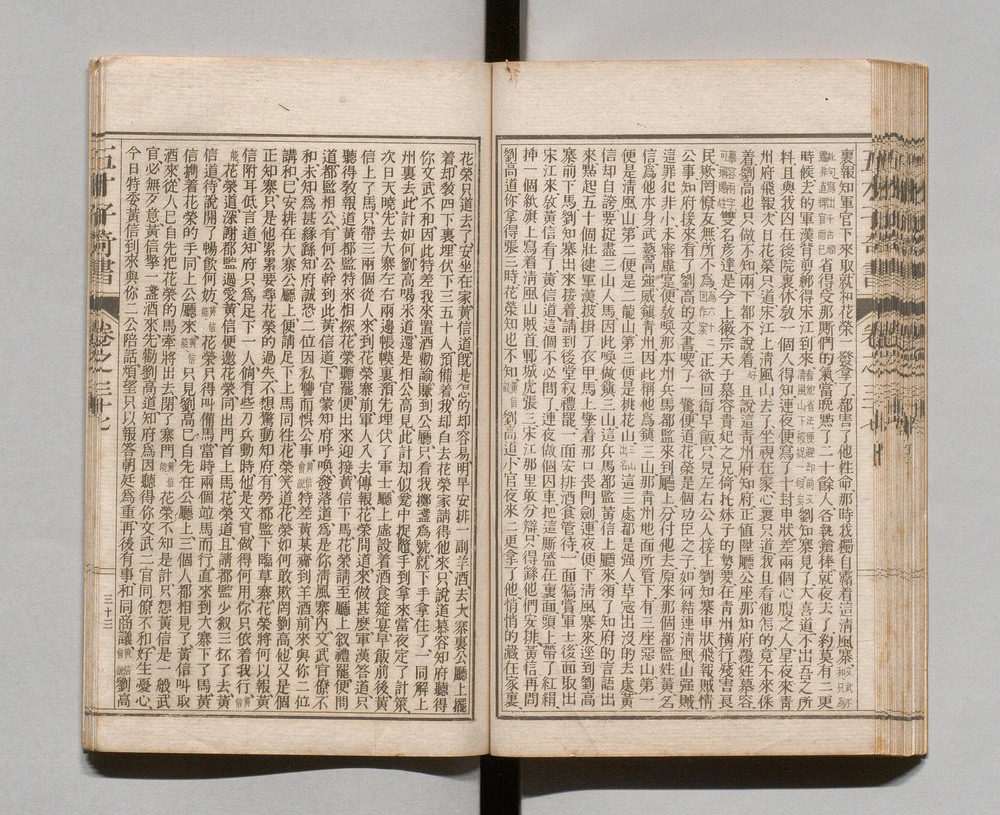 裏報知軍官下來取就和花榮一發拿了都害了他性命那時我獨自霸着這清風寨
省得受那厮們的氣當晚點了二十餘人各執鎗棒就夜去了約莫有二更
時候去的軍漢背剪綁得宋江到來劉知寨見了大喜道不出吾之所
料且與我囚在後院裏休敎一個人得知連夜便寫了十封申狀差兩個心腹之人星夜來靑
州府飛報次日花榮只道宋江上清風山去了坐視在家心裏只道我且看他怎的竟不來倸
着劉高也只做不知兩下都不說着且說這靑州府知府正值陞廳公座那知府覆姓慕容
雙名彥達是今上徽宗天子慕容貴妃之兄倚托妹子的勢要在靑州橫行殘害良
民欺罔僚友無所不為正欲回衙早飯只見左右公人接上劉知寨申狀飛報賊情
公事知府接來看了劉高的文書喫了一驚便道花榮是個功臣之子如何結連清風山强賊
這罪犯非小未審虛實便敎喚那本州兵馬都監來到廳上分付他去原來那個都監姓黃名
信為他本身武藝高强威鎮靑州因此稱他為鎮三山那靑州地面所管下有三座惡山第一
便是清風山第二便是二龍山第三便是桃花山這三處都是强人草寇出沒的去處黃
信却自誇要捉盡三山人馬因此喚做鎮三山這兵馬都監黃信上廳來領了知府的言語出
來點起五十個壯健軍漢披掛了衣甲馬上擎着那口喪門劍連夜便下清風寨來逕到劉高
寨前下馬劉知寨出來接着請到後堂叙禮罷一面安排酒食管待一面犒賞軍士後面取出
宋江來敎黃信看了黃信道這個不必問了連夜做個囚車把這厮盛在裏面頭上帶了紅絹
揷一個紙旗上寫着清風山賊首鄆城虎張三宋江那里敢分辯只得繇他們安排黃信再問
劉高道你拿得張三時花榮知也不知劉高道小官夜來二更拿了他悄悄的藏在家裏
花榮只道去了安坐在家黃信道旣是恁的却容易明早安排一副羊酒去大寨裏公廳上擺
着却敎四下裏埋伏下三五十人預備着我却自去花榮家請得他來只說道慕容知府聽得
你文武不和因此特差我來置酒勸諭賺到公廳只看我擲盞為號就下手拿住了一同解上
州裏去此計如何劉高喝采道還是相公高見此計却似瓮中捉鱉手到拿來當夜定了計策
次日天曉先去大寨左右兩邊帳幙裏預先埋伏了軍士廳上虛設着酒食筵宴早飯前後黃
信上了馬只帶三兩個從人來到花榮寨前軍人入去傳報花榮問道來做甚麼軍漢答道只
聽得敎報道黃都監特來相探花榮聽罷便出來迎接黃信下馬花榮請至廳上叙禮罷便問
道都監相公有何公幹到此黃信道下官蒙知府呼喚發落道為是你清風寨內文武官僚不
和未知為甚緣繇知府誠恐二位因私讐而悞公事特差黃某齎到羊酒前來與你二位
講和已安排在大寨公廳上便請足下上馬同往花榮笑道花榮如何敢欺罔劉高他又是個
正知寨只是他累累要尋花榮的過失不想驚動知府有勞都監下臨草寨花榮將何以報黃
信附耳低言道知府只為足下一人倘有些刀兵動時他是文官做得何用你只依着我行
花榮道深謝都監過愛黃信便邀花榮同出門首上馬花榮道且請都監少叙三杯了去黃
信道待說開了暢飲何妨花榮只得叫備馬當時兩個竝馬而行直來到大寨下了馬黃
信携着花榮的手同上公廳來只見劉高已自先在公廳上三個人都相見了黃信叫取
酒來從人已自先把花榮的馬牽將出去閉了寨門花榮不知是計只想黃信是一般武
官必無歹意黃信擎一盞酒來先勸劉高道知府為因聽得你文武二官同僚不和好生憂心
今日特委黃信到來與你二公陪話煩望只以報答朝廷為重再後有事和同商議劉高
卷之三十七
三十三